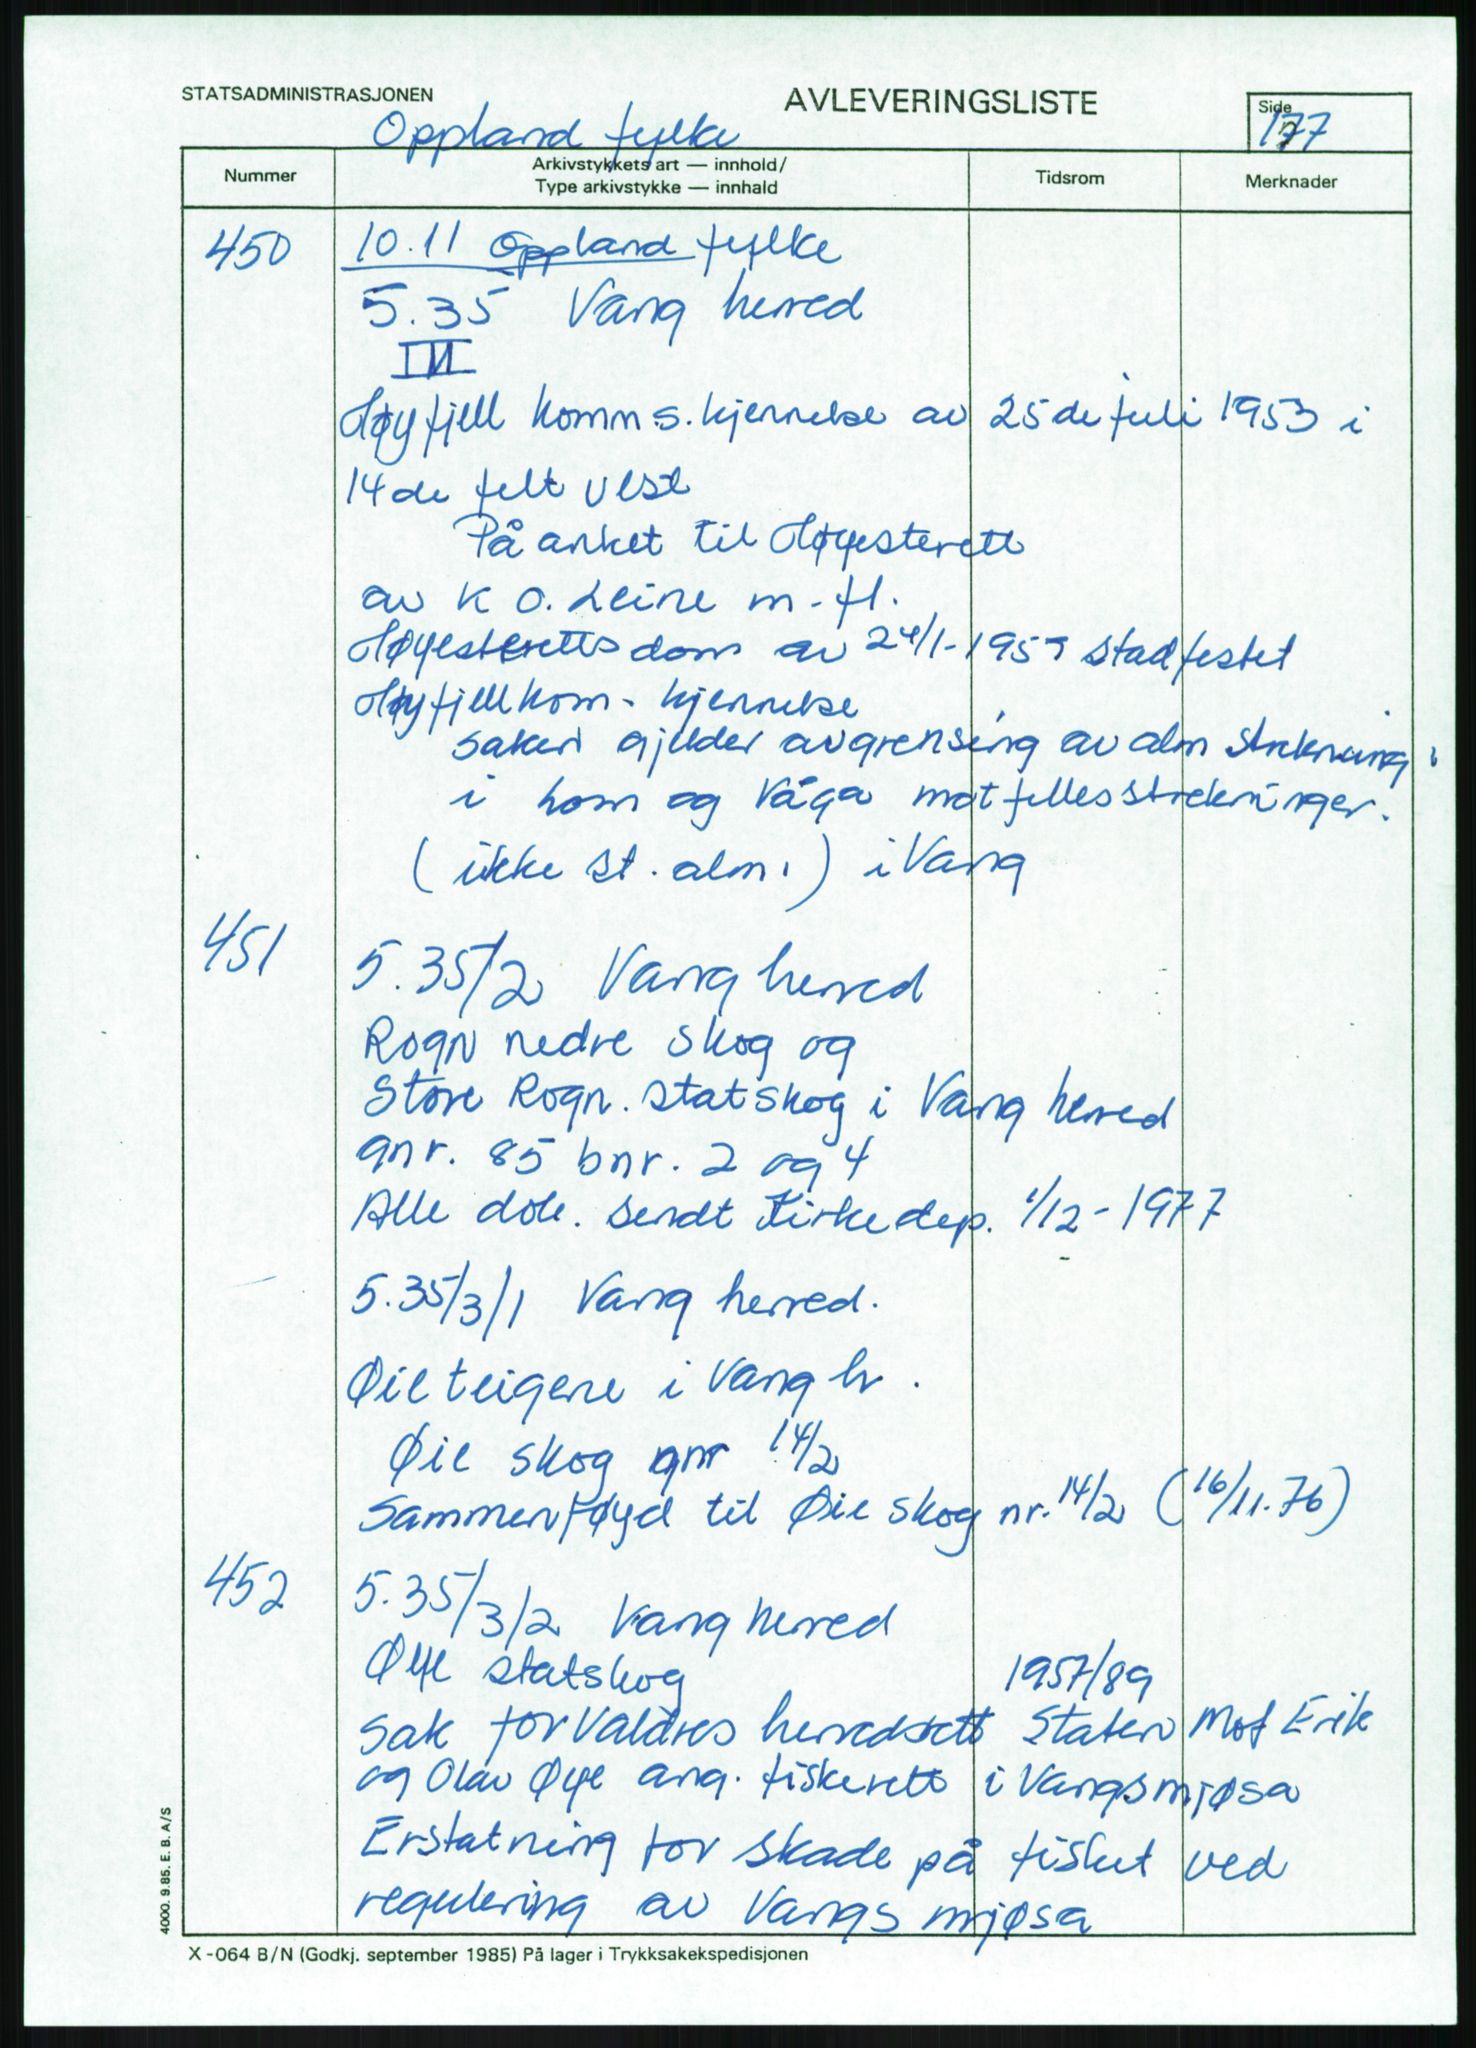 STATSADMINISTRASJONEN
AVLEVERINGSLISTE
Side
177
Oppland fylke
Nummer
Arkivstykkets art — innhold/
Type arkivstykke — innhald
Tidsrom
Merknader
450
10.11 Oppland fylke
5.35 Vang herred
Høyfjell komm.s. kjennelse av 25de juli 1953 i
14de felt vest
På anket til Høyesterett
av K O. Leine m. fl.
Høyesteretts dom av 24/1-195 stadfestet
Høyfjellkom. kjennelse
saken gjelder avgrensing av alm strekning
i Lom og Våga mot fellesstrekninger.
(ikke st. alm.) i Vang
451
5.35/2 Vang herred
Rogn nedre skog og
Store Rogn. statskog i Vang herred
gnr. 85 bnr. 2 og 4
Alle dok. sendt Kirkedep. 1/12-1977
5.35/3/1 Vang herred.
Øie teigene i Vang h.
Øie skog gnr 14/2
Sammenføyd til Øie skog nr. 14/2 (16/11.76)
452
5.35/3/2 Vang herred
Øye statskog 1957/89
Sak for Valdres herredsrett Staten mot Erik
og Olav Øye ang. fiskerett i Vangsmjøsa
Erstatning for skade på fisket ved
regulering av Vangsmjøsa
4000. 9.85. E. B. A/S
X-064 B/N (Godkj. september 1985) På lager i Trykksakekspedisjonen